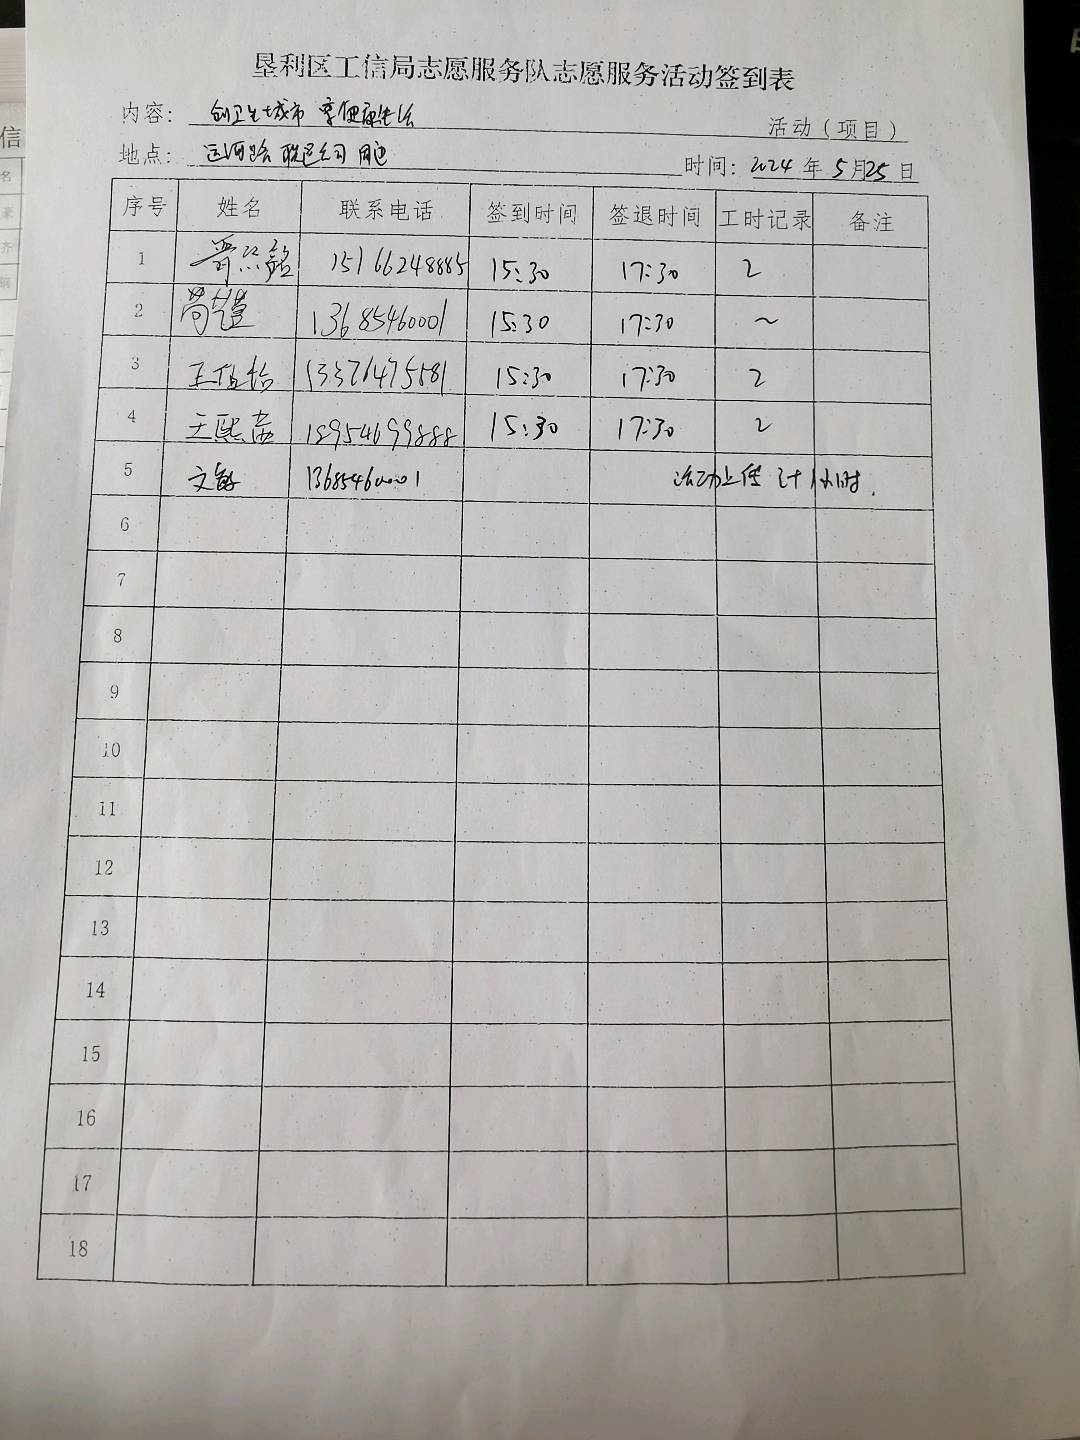 垦利区工信局志愿服务队志愿服务活动签到表
内容: 创卫生城市 享健康生活 活动（项目）
地点: 运河路 联通公司 周边 时间: 2024 年 5月25日
序号 姓名 联系电话 签到时间 签退时间 工时记录 备注
1 15166248885 15:30 17:30 2
2 13685460001 15:30 17:30 ~
3 王佳怡 15:30 17:30 2
4 王熙 18954699888 15:30 17:30 2
5 文敏 13685460001 活动上传 计1小时.
6
7
8
9
10
11
12
13
14
15
16
17
18
信
名
齐